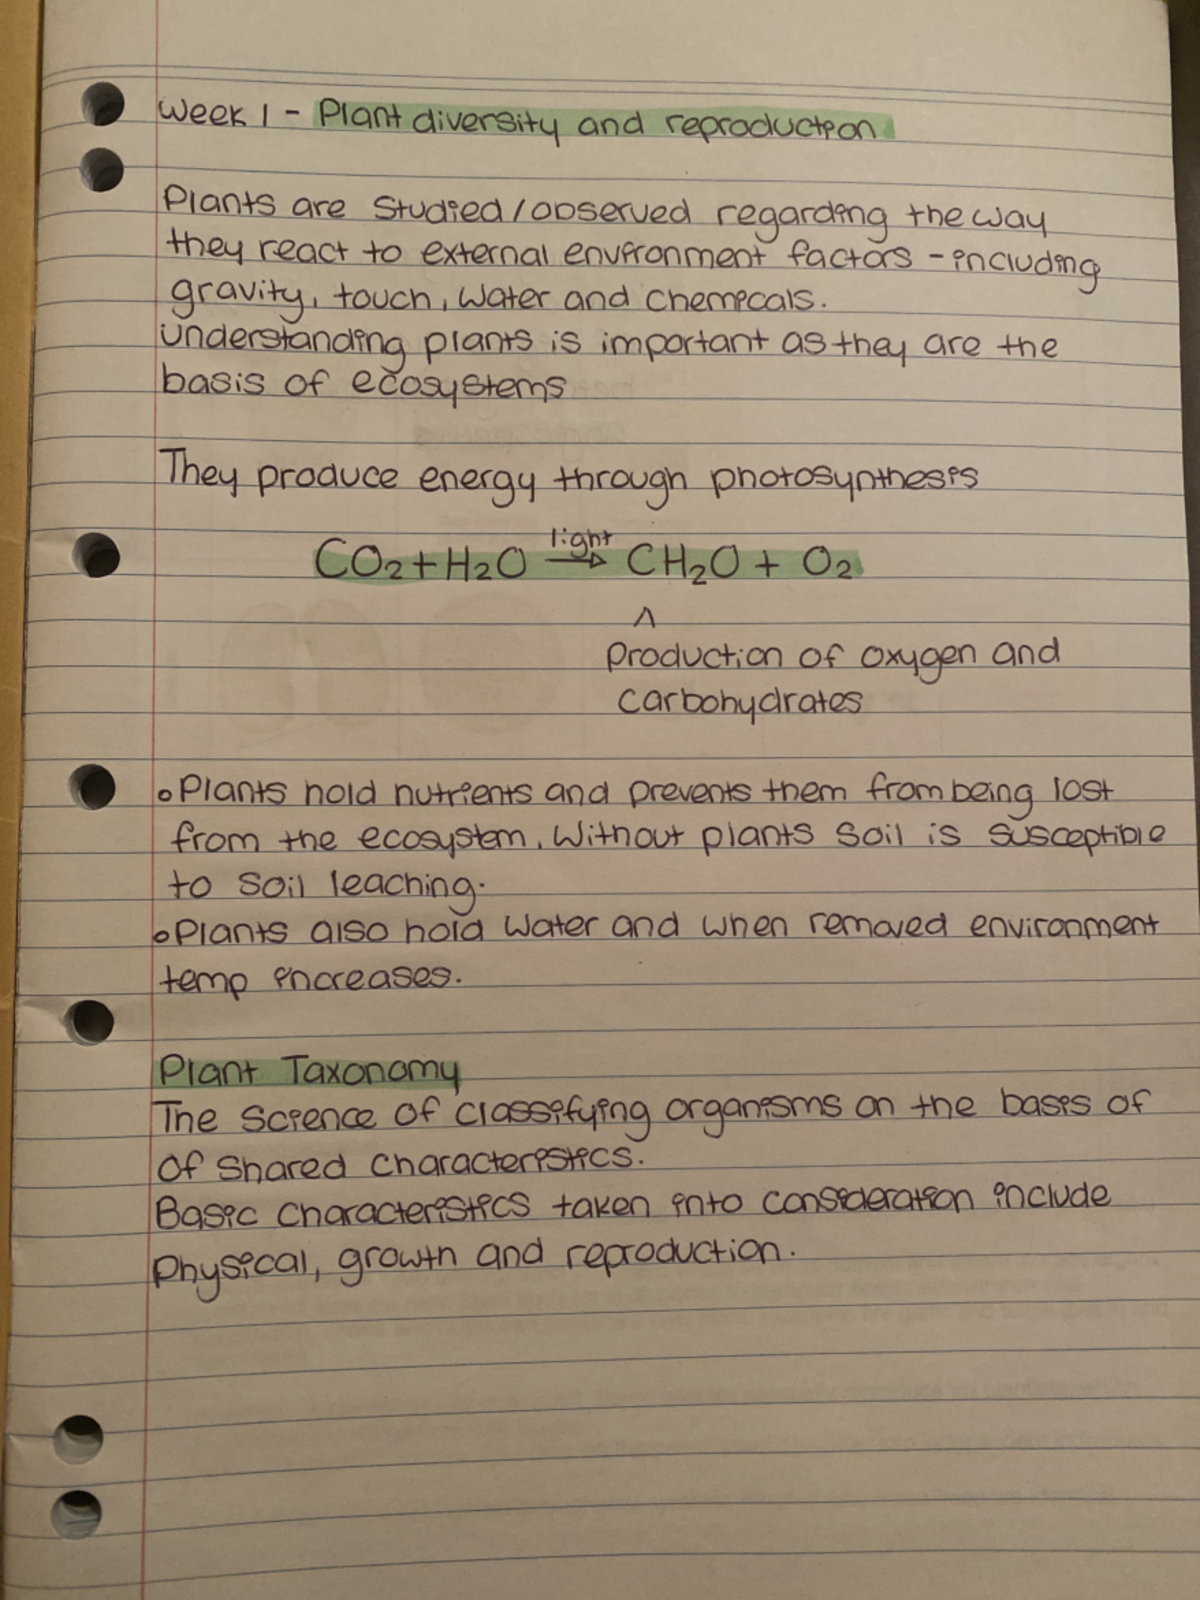 Week 1 - Plant diversity and reproduction
Plants are studied/observed regarding the way
they react to external environment factors - including
gravity, touch, water and chemicals.
Understanding plants is important as they are the
basis of ecosystems
They produce energy through photosynthesis
light
CO2 + H2O → CH2O + O2
^
production of oxygen and
carbohydrates
• Plants hold nutrients and prevents them from being lost
from the ecosystem. Without plants soil is susceptible
to soil leaching.
• Plants also hold water and when removed environment
temp increases.
Plant Taxonomy
The science of classifying organisms on the basis of
of shared characteristics.
Basic characteristics taken into consideration include
physical, growth and reproduction.